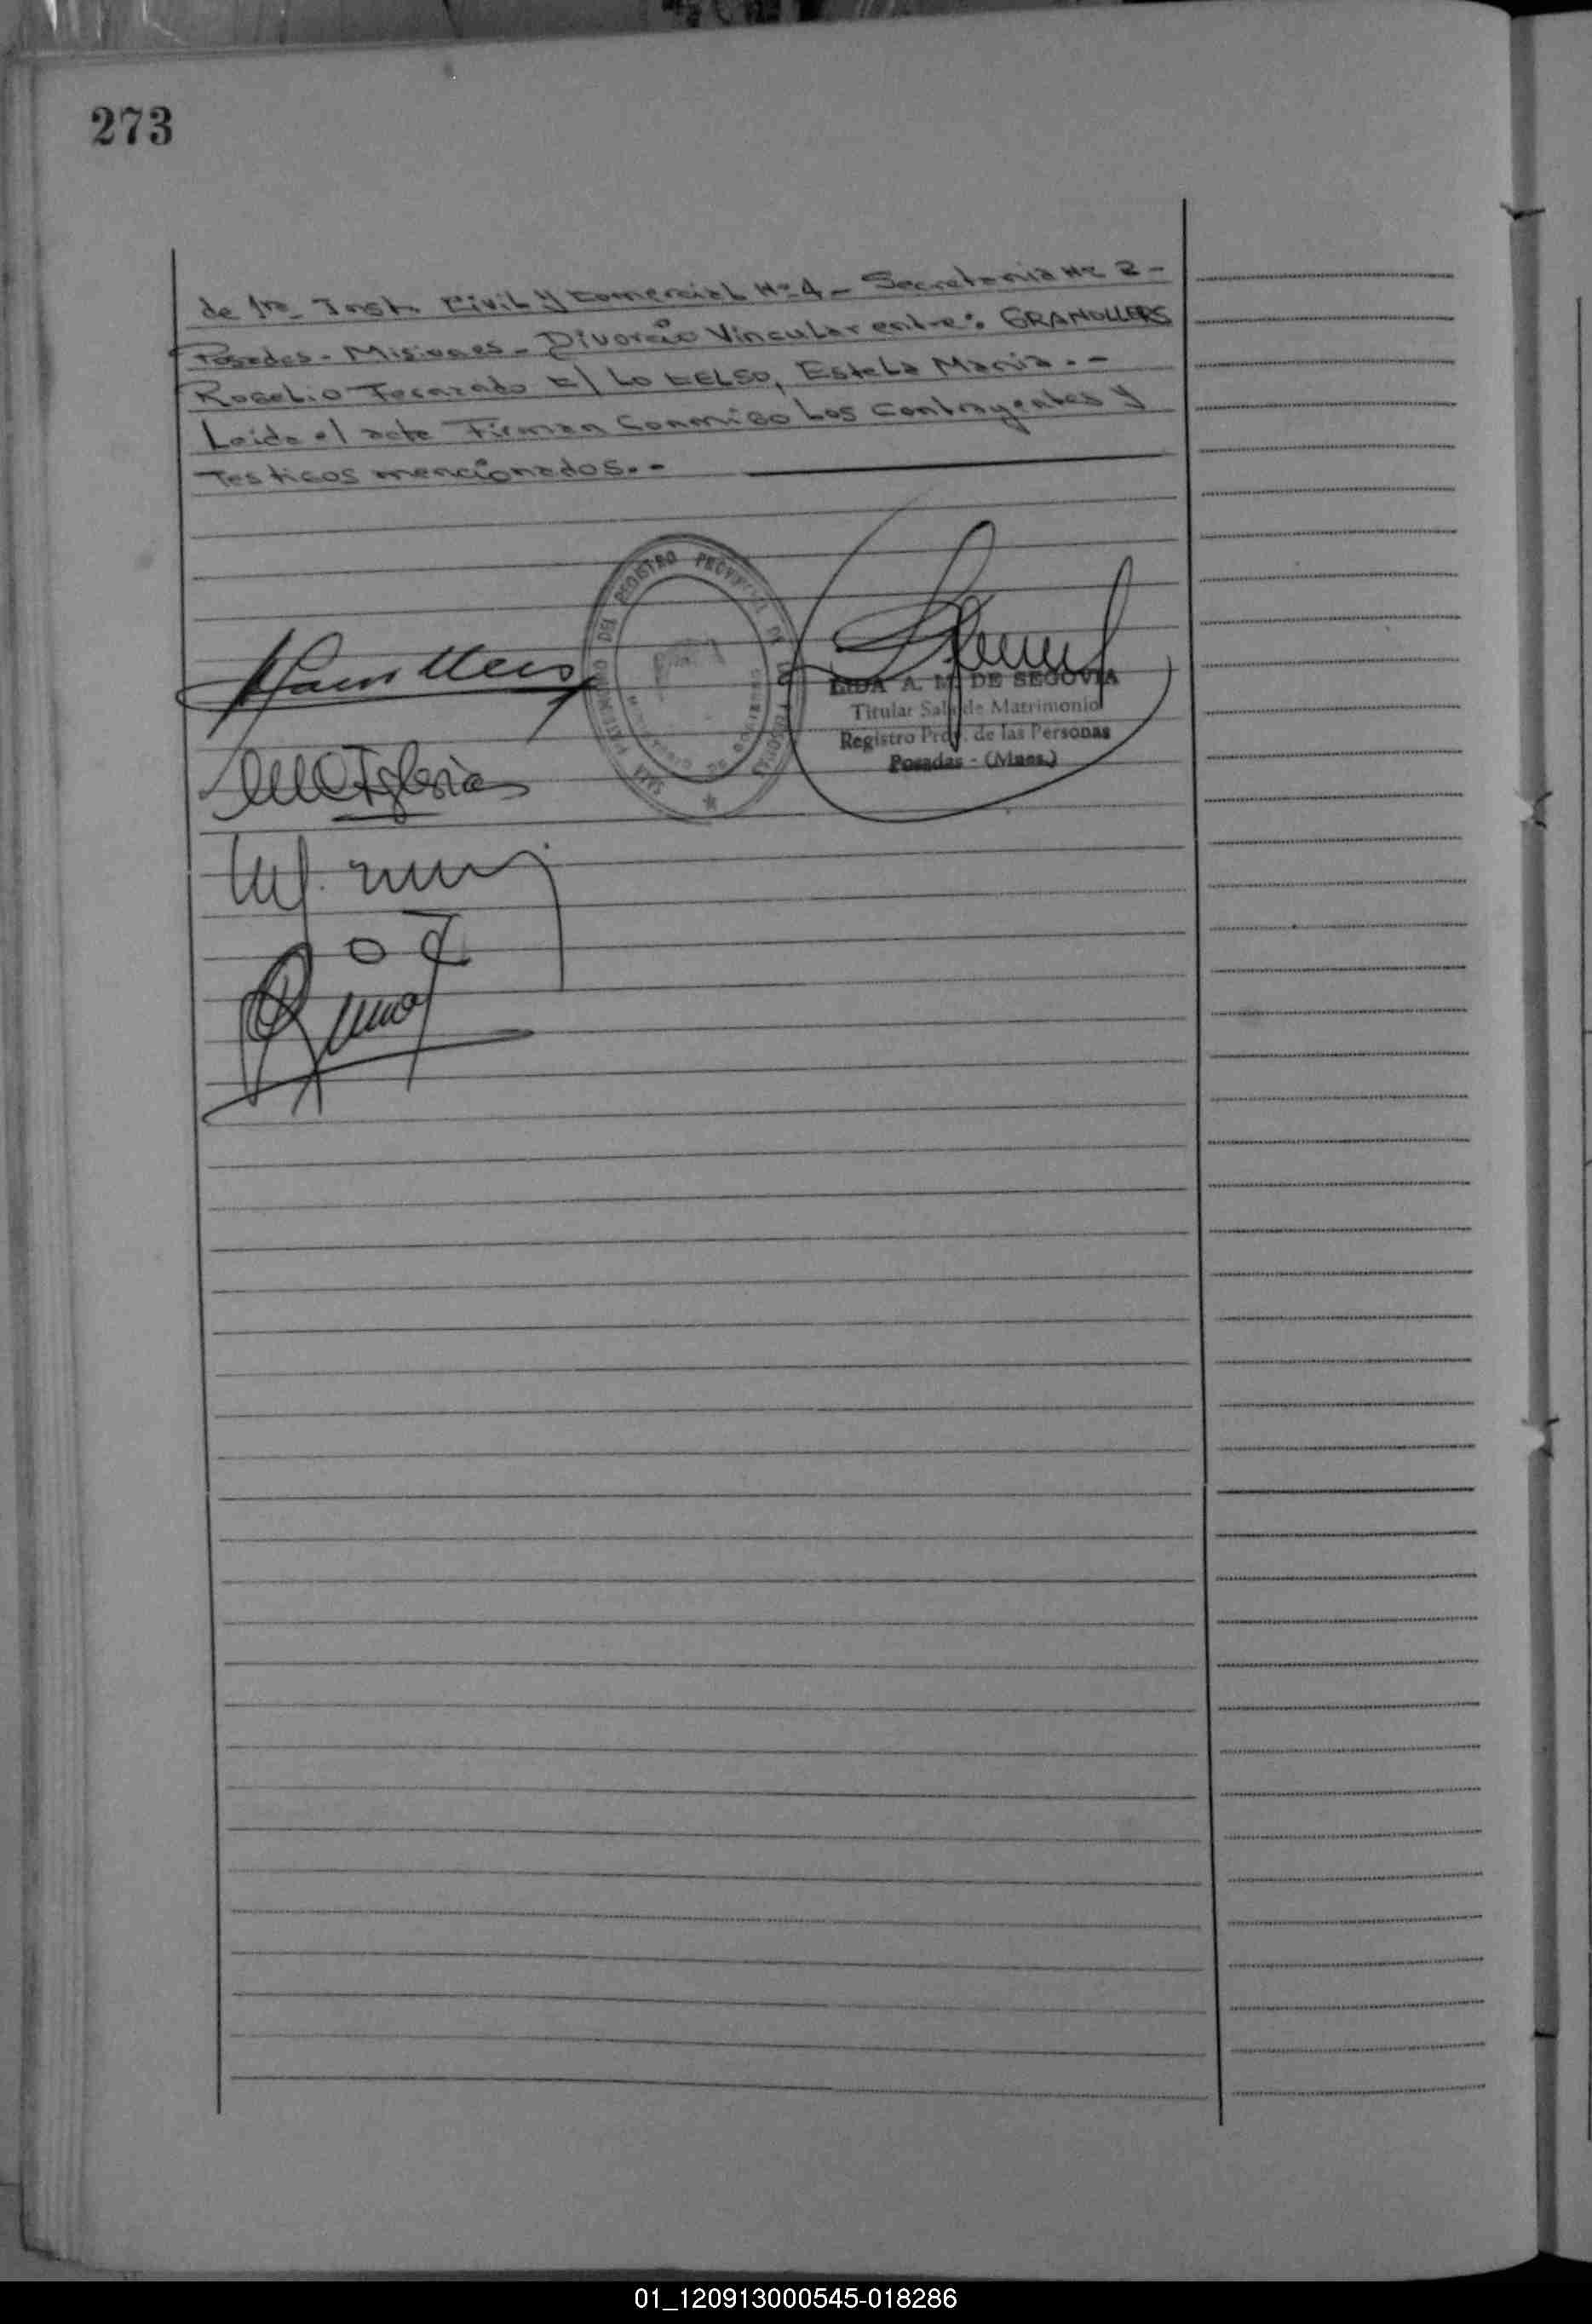 273
de 1ra Inst. Civil y Comercial Nº 4 - Secretaria Nº 2 -
Posadas - Misiones - Divorcio Vincular entre: GRANOLLERS
Rogelio Torcuato C/ LO CELSO, Estela Maria. -
Leida el acta Firman Conmigo Los Contrayentes y
Testigos mencionados. -
SALA PATRIMONIO DEL REGISTRO PROVINCIAL DE LAS PERSONAS
MINISTERIO DE GOBIERNO
LIDA A. M. DE SEGOVIA
Titular Sala de Matrimonio
Registro Prov. de las Personas
Posadas - (Mnes.)
Iglesias
01_120913000545-018286